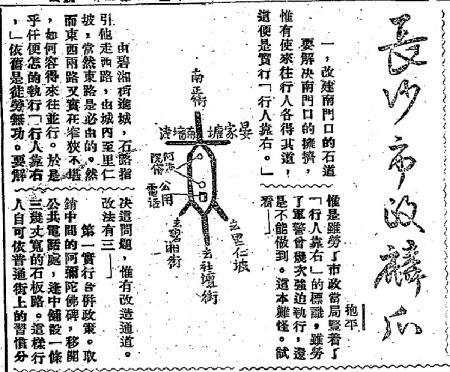 長沙市政麟爪
抱平
一，改建南門口的石道
要解決南門口的擁擠，
惟有使來往行人各得其道，
這便是實行「行人靠右。」
惟是雖勞了市政當局豎着了
「行人靠右」的標識，雖勞
了軍警曾幾次強迫執行，還
是不能做到。這本難怪。試
看——
南正街
晏家塘
阿彌陀佛
公用
電話
去里仁坡
去社壇街
去碧湘街
由碧湘街進城，石路指
引他走西路，由城內至里仁
坡，當然東路是必由的。然
而東西兩路又實在窄狹不堪
，如何容得來往並行。於是
乎任便怎的執行「行人靠右
，」依舊是徒勞無功。要解
決這問題，惟有改造通道。
改法有三——
第一實行合併政策。取
銷中間的阿彌陀佛碑，移開
公共電話處，逢中鋪設一條
三幾丈寬的石板路。這樣行
人自可依普通街上的習慣分